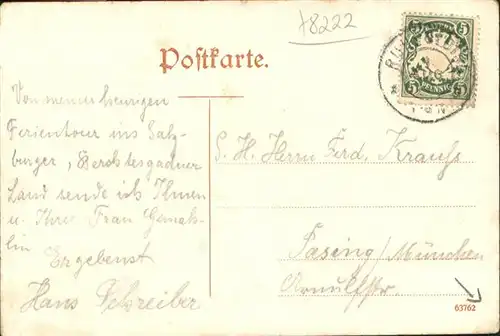 +8222
Postkarte.
5 5
PFENNIG
5 5
Von meiner heurigen
Ferientour ins Salz-
burger, Berchtesgadner
Land sende ich Ihnen
u. Ihrer Frau Gemah-
lin
Ergebenst
Hans Schreiber
S. H. Herrn Ferd. Krauss
Pasing/München
Arnulfstr.
63762